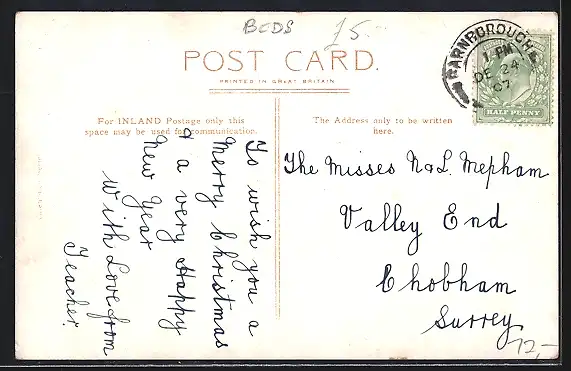 BEDS £5-
POST CARD.
PRINTED IN GREAT BRITAIN
For INLAND Postage only this
space may be used for communication.
The Address only to be written
here.
FARNBOROUGH
1. PM
DE 24
07
HALF PENNY
To wish you a
Merry Christmas
& a very Happy
New Year
With Love from
Teacher.
The Misses N & L. Mepham
Valley End
Chobham
Surrey
12,-